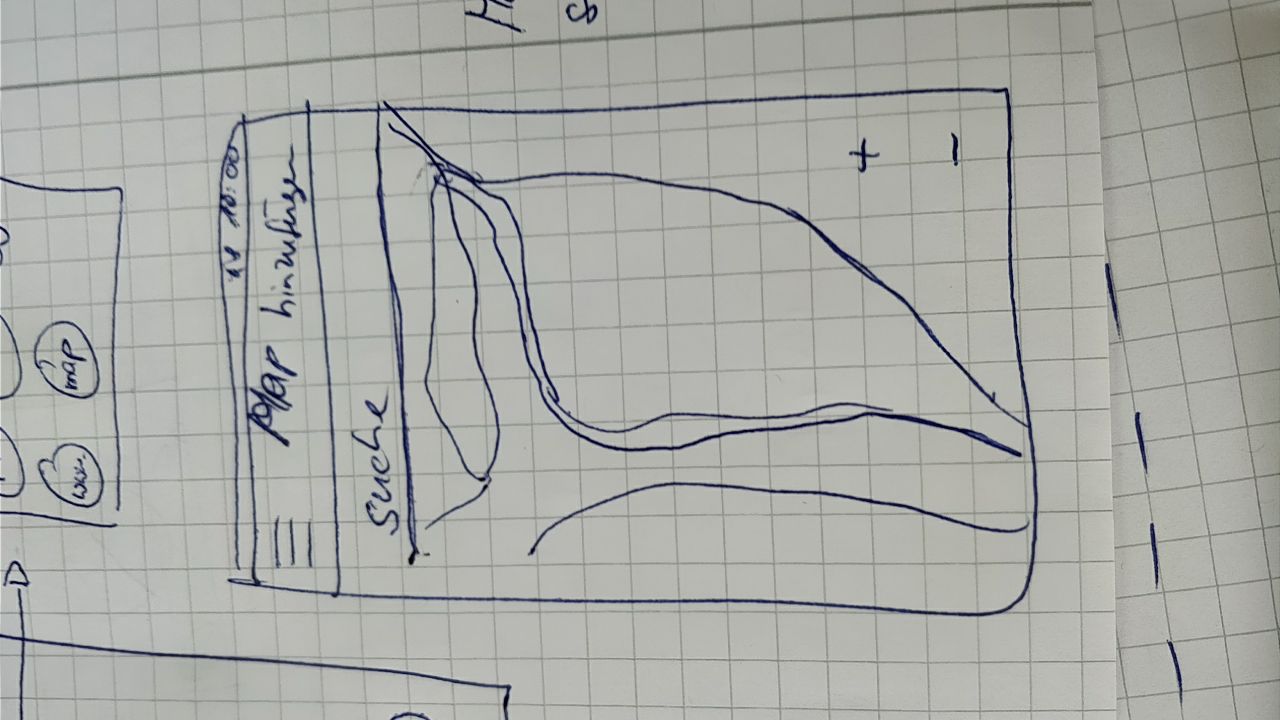 www.
map
10:00
Map hinzufügen
Suche
+
-